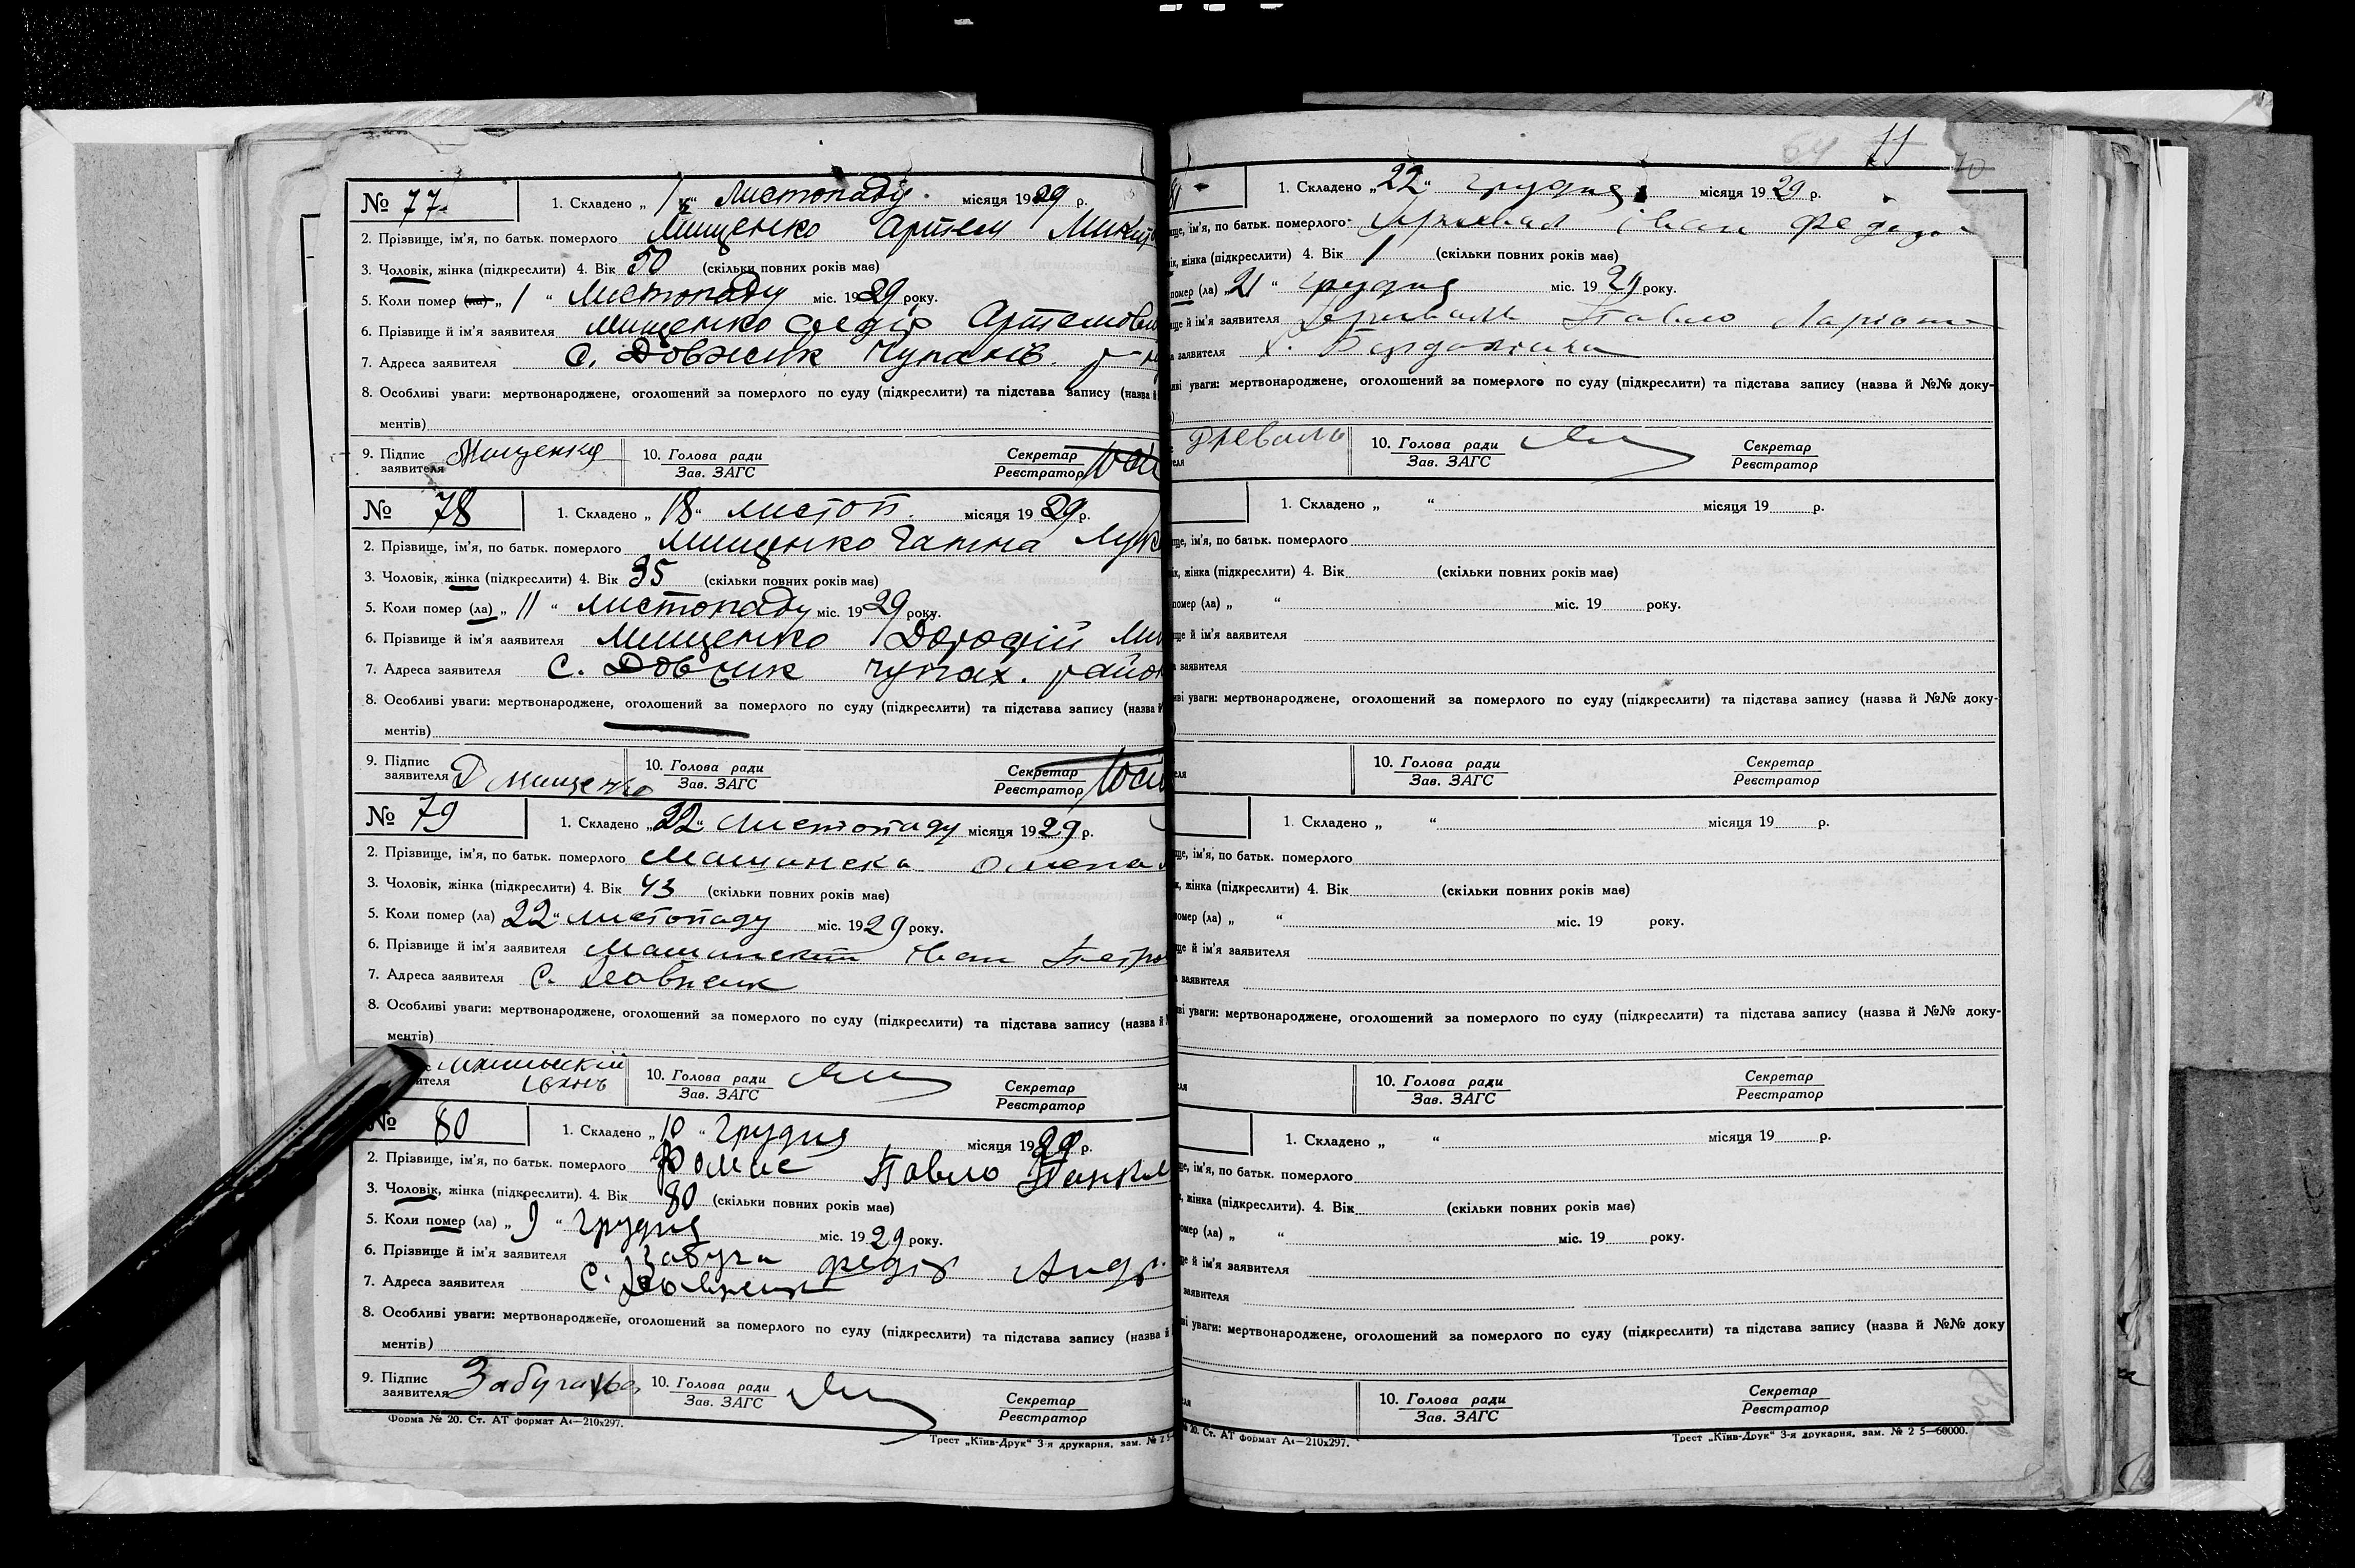 № 77. 1. Складено „ 1 “ Листопаду. місяця 1929 р.
2. Прізвище, ім'я, по батьк. померлого Мищенко Артем Микит
3. Чоловік, жінка (підкреслити) 4. Вік 50 (скільки повних років має)
5. Коли помер (ла) „ 1 “ Листопаду міс. 1929 року.
6. Прізвище й ім'я заявителя Мищенко Федір Артемови
7. Адреса заявителя с. Довжик Чупахів. р-н
8. Особливі уваги: мертвонароджене, оголошений за померлого по суду (підкреслити) та підстава запису (назва й
ментів)
9. Підпис заявителя Мищенко 10. Голова ради Секретар
Зав. ЗАГС Реєстратор
№ 78 1. Складено „ 18 “ листоп. місяця 19 29 р.
2. Прізвище, ім'я, по батьк. померлого Мищенко Ганна Лук
3. Чоловік, жінка (підкреслити) 4. Вік 35 (скільки повних років має)
5. Коли помер (ла) „ 11 “ листопаду міс. 1929 року.
6. Прізвище й ім'я заявителя Мищенко Дорофій Ми
7. Адреса заявителя с. Довжик Чупах. район
8. Особливі уваги: мертвонароджене, оголошений за померлого по суду (підкреслити) та підстава запису (назва й
ментів)
9. Підпис заявителя Д Мищенко 10. Голова ради Секретар
Зав. ЗАГС Реєстратор
№ 79 1. Складено „ 22 “ Листопаду місяця 1929 р.
2. Прізвище, ім'я, по батьк. померлого Олена
3. Чоловік, жінка (підкреслити) 4. Вік 43 (скільки повних років має)
5. Коли помер (ла) 22 “ листопаду міс. 1929 року.
6. Прізвище й ім'я заявителя Иван Петро
7. Адреса заявителя с. Довжик
8. Особливі уваги: мертвонароджене, оголошений за померлого по суду (підкреслити) та підстава запису (назва й
ментів)
10. Голова ради Секретар
Зав. ЗАГС Реєстратор
№ 80 1. Складено „ 10 “ Грудня місяця 1929 р.
2. Прізвище, ім'я, по батьк. померлого Павло
3. Чоловік, жінка (підкреслити). 4. Вік 80 (скільки повних років має)
5. Коли помер (ла) „ 9 “ Грудня міс. 1929 року.
6. Прізвище й ім'я заявителя Забуга Федір Андр.
7. Адреса заявителя с. Довжик
8. Особливі уваги: мертвонароджене, оголошений за померлого по суду (підкреслити) та підстава запису (назва й
ментів)
9. Підпис заявителя 10. Голова ради Секретар
Зав. ЗАГС Реєстратор
Форма № 20. Ст. АТ формат А4—210х297.
Трест „Київ-Друк“ 3-я друкарня, зам. № 2
64 11
81 1. Складено „ 22 “ Грудня місяця 19 29 р.
ще, ім'я, по батьк. померлого Іван Федор
ік, жінка (підкреслити) 4. Вік 1 (скільки повних років має)
помер (ла) „ 21 “ Грудня міс. 19 29 року.
ще й ім'я заявителя Павло
а заявителя с.
ві уваги: мертвонароджене, оголошений за померлого по суду (підкреслити) та підстава запису (назва й №№ доку-
Древаль 10. Голова ради Секретар
Зав. ЗАГС Реєстратор
1. Складено „ “ місяця 19 р.
ще, ім'я, по батьк. померлого
ік, жінка (підкреслити) 4. Вік (скільки повних років має)
помер (ла) „ “ міс. 19 року.
ще й ім'я заявителя
а заявителя
ві уваги: мертвонароджене, оголошений за померлого по суду (підкреслити) та підстава запису (назва й №№ доку-
10. Голова ради Секретар
Зав. ЗАГС Реєстратор
1. Складено „ “ місяця 19 р.
ще, ім'я, по батьк. померлого
к, жінка (підкреслити) 4. Вік (скільки повних років має)
помер (ла) „ “ міс. 19 року.
ще й ім'я заявителя
заявителя
ві уваги: мертвонароджене, оголошений за померлого по суду (підкреслити) та підстава запису (назва й №№ доку-
10. Голова ради Секретар
Зав. ЗАГС Реєстратор
1. Складено „ “ місяця 19 р.
ще, ім'я, по батьк. померлого
, жінка (підкреслити). 4. Вік (скільки повних років має)
омер (ла) „ “ міс. 19 року.
е й ім'я заявителя
заявителя
ві уваги: мертвонароджене, оголошений за померлого по суду (підкреслити) та підстава запису (назва й №№ доку
10. Голова ради Секретар
Зав. ЗАГС Реєстратор
20. Ст. АТ формат А4—210х297.
Трест „Київ-Друк“ 3-я друкарня, зам. № 2 5—60000.